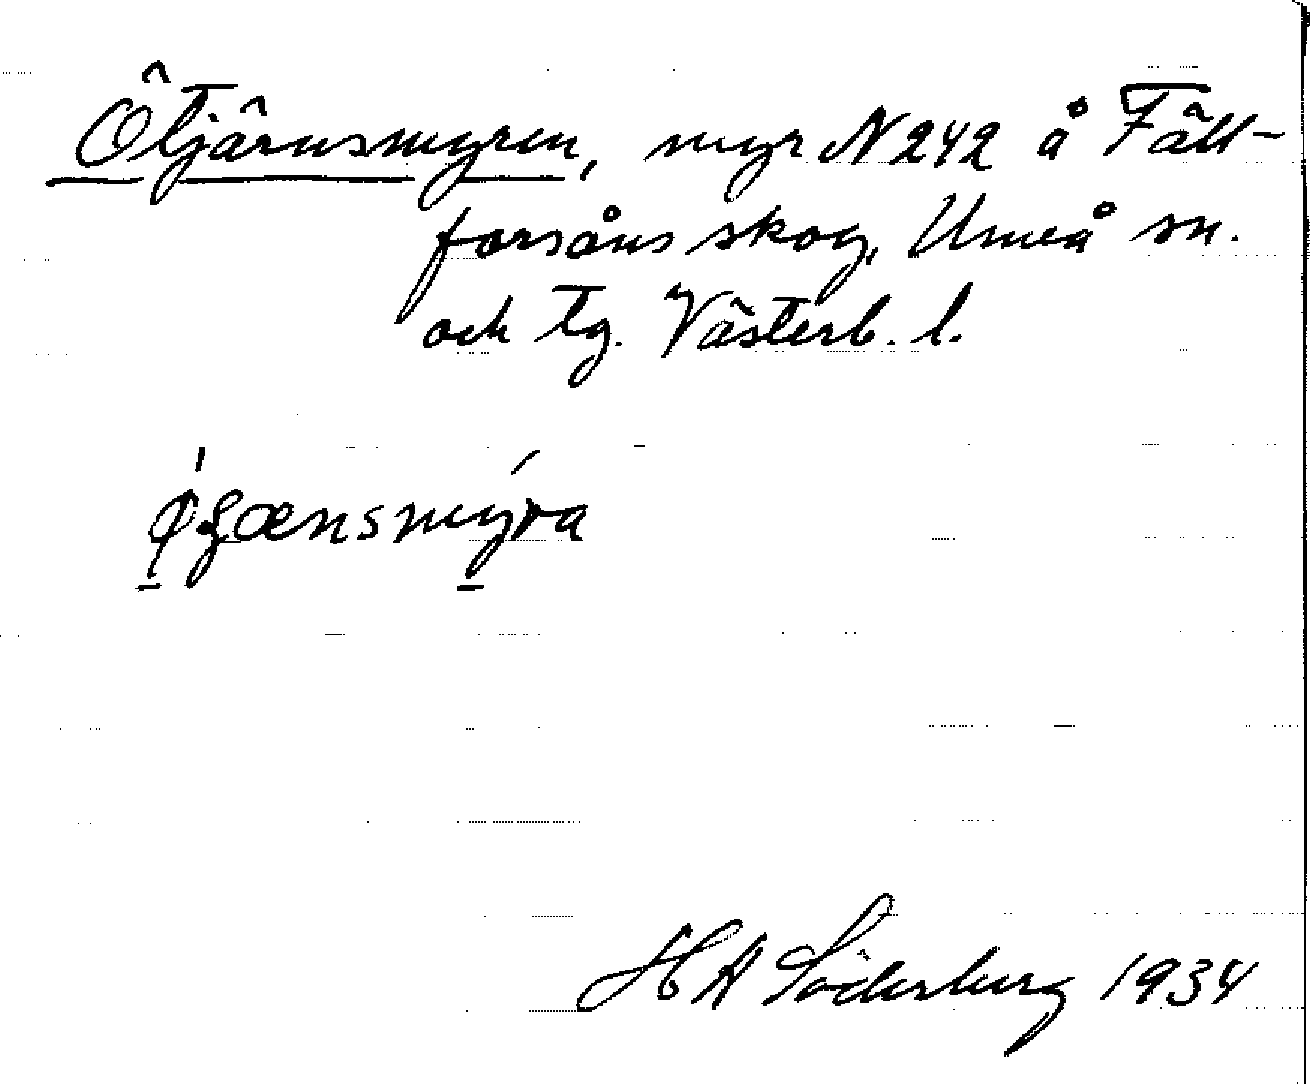 Ötjärnsmyren, myr N 242 å Fält-
forsåns skog, Umeå sn.
och tg. Västerb. l.
H A Söderberg 1934